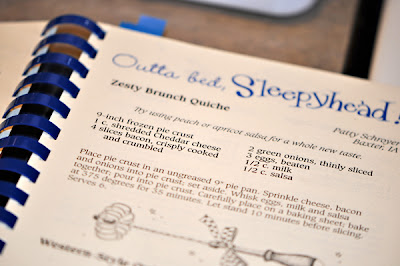 Outta bed, Sleepyhead!
Zesty Brunch Quiche
Patty Schroyer
Baxter, IA
Try using peach or apricot salsa for a whole new taste.
9-inch frozen pie crust
1 c. shredded Cheddar cheese
4 slices bacon, crisply cooked
and crumbled
2 green onions, thinly sliced
3 eggs, beaten
1/2 c. milk
1/2 c. salsa
Place pie crust in an ungreased 9" pie pan. Sprinkle cheese, bacon
and onions into pie crust; set aside. Whisk eggs, milk and salsa
together; pour into pie crust. Carefully place on a baking sheet; bake
at 375 degrees for 35 minutes. Let stand 10 minutes before slicing.
Serves 6.
Western-Style